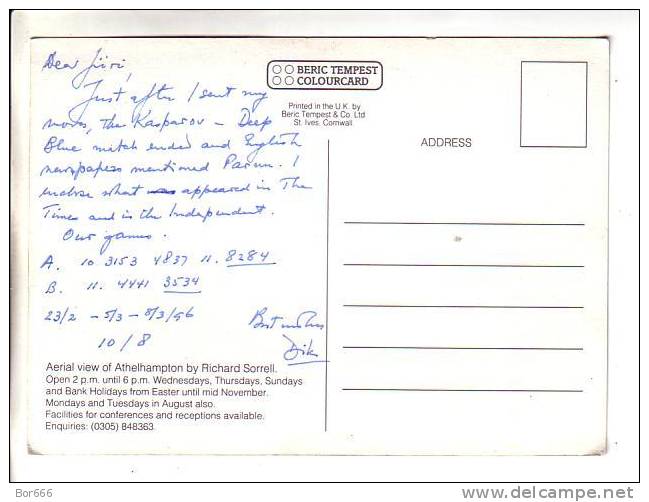 Dear Jüri,
Just after I sent my
moves, the Kasparov – Deep
Blue match ended and English
newspapers mentioned Pärnu. I
enclose what appeared in The
Times and in the Independent.
Our games.
A. 10 3153 4837 11. 8284
B. 11. 4441 3534
23/2 – 5/3 – 8/3/96
10/8
Best wishes
BERIC TEMPEST
COLOURCARD
Printed in the U.K. by
Beric Tempest & Co. Ltd
St. Ives, Cornwall
ADDRESS
Aerial view of Athelhampton by Richard Sorrell.
Open 2 p.m. until 6 p.m. Wednesdays, Thursdays, Sundays
and Bank Holidays from Easter until mid November.
Mondays and Tuesdays in August also.
Facilities for conferences and receptions available.
Enquiries: (0305) 848363.
Bor666
www.delcampe.net